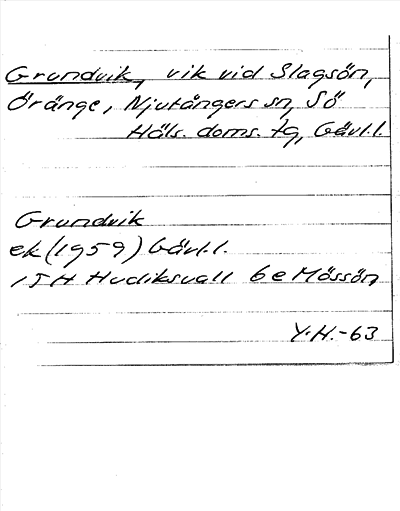 Grundvik, vik vid Slagsön,
Öränge, Njutångers sn, Sö
Häls. doms. tg, Gävl.l.
Grundvik
ek (1959) Gävl.l.
15H Hudiksvall 6e Mössön
Y.H.-63